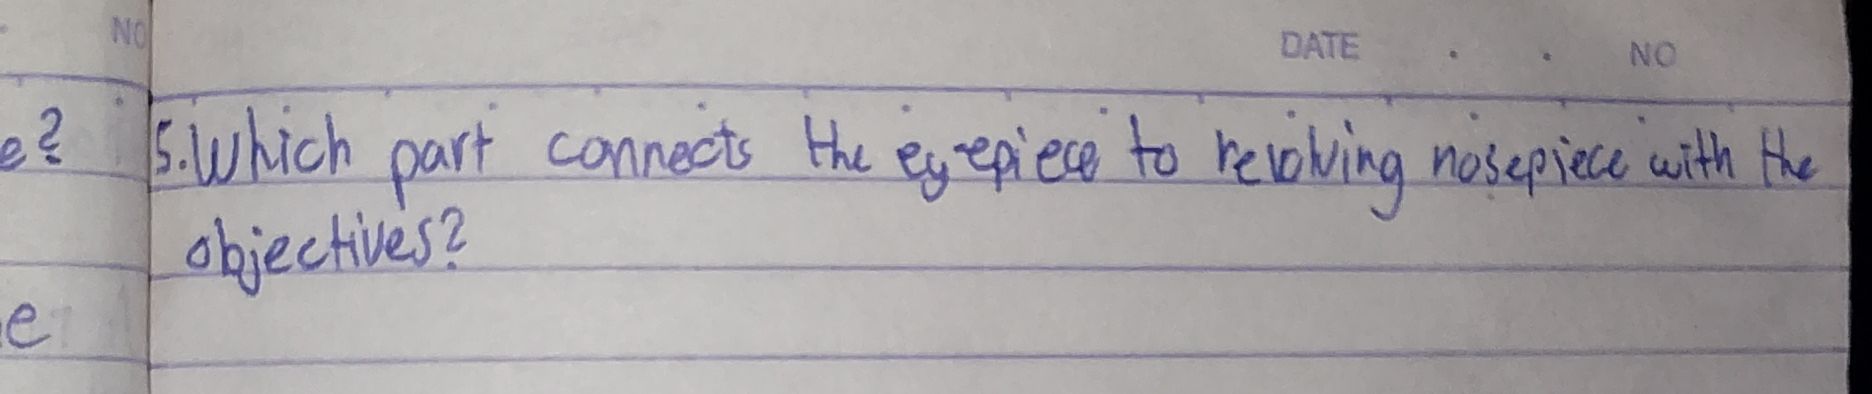 NO
DATE . . NO
e? 5. Which part connects the eyepiece to revolving nosepiece with the
objectives?
e